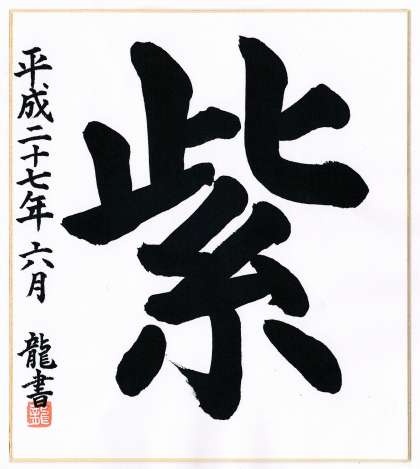 紫
平成二十七年 六月 龍書
龍